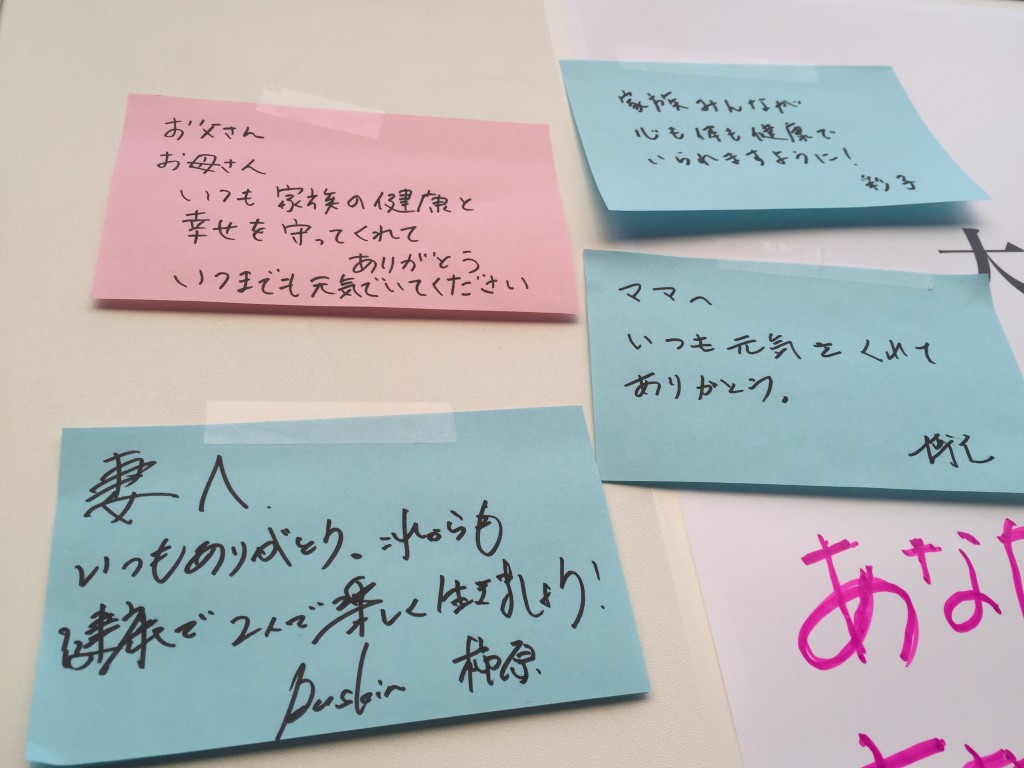 お父さん
お母さん
いつも 家族の健康と
幸せを 守ってくれて
ありがとう
いつまでも元気でいてください
家族みんなが
心も体も健康で
いられますように!
彩子
ママへ
いつも元気をくれて
ありがとう。
妻へ
いつもありがとう。これからも
健康で2人で楽しく生きましょう!
Duskin 柿原
大
あなた